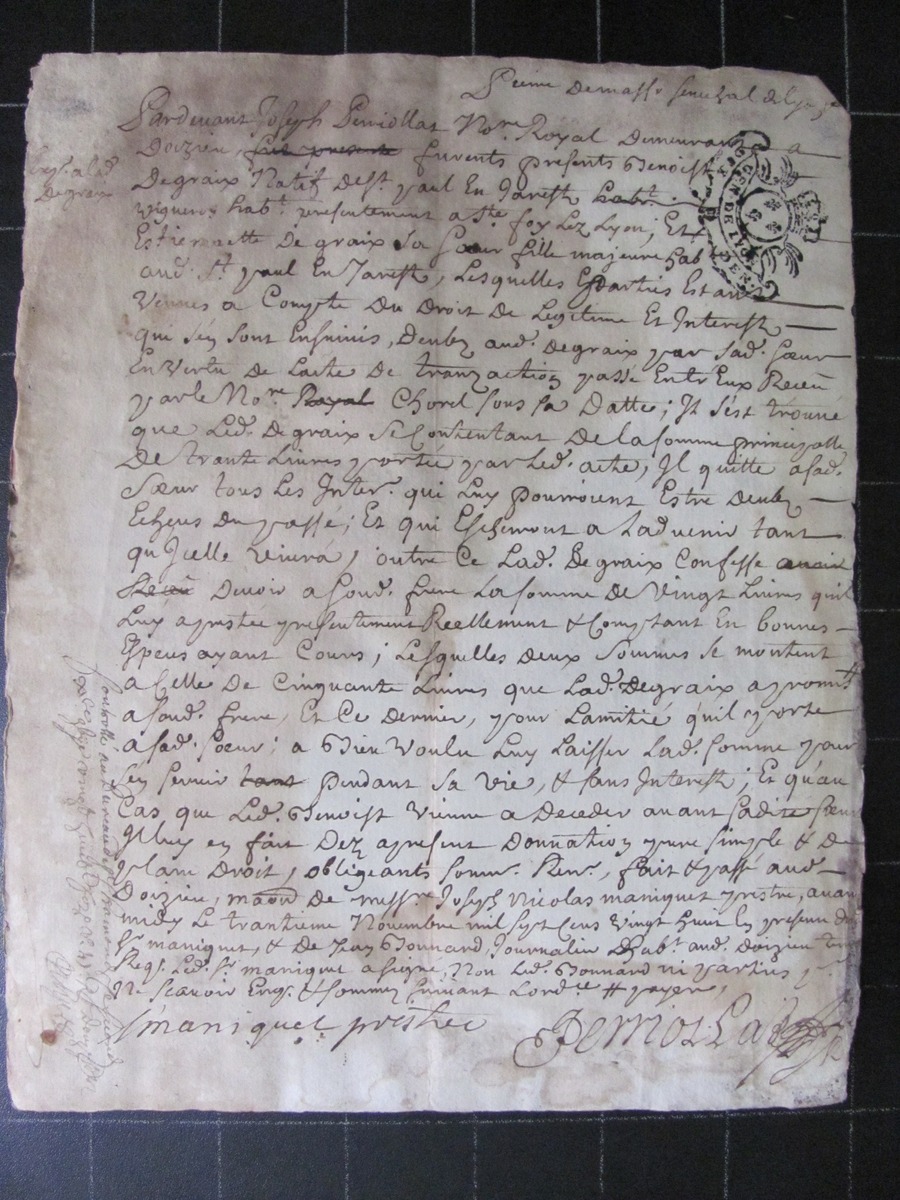 Pardevant Joseph Perriollat No.re Royal Demeurant a
Doizieu, fut presente furents presents Benoist
Degraix Natif de St. paul En Jarest habt.
vigneron habt. presentement a Ste. foy Lez Lyon, Et
Estiennette De graix Sa Sœur fille majeure hab
aud. St. paul En Jarest, Lesquelles parties Estant
Venues a Compte Du Droit De Legitime Et Interest
qui s'en sont Ensuivis, Deubz aud. Degraix par sad. sœur
En vertu De Lacte De tranzaction passé Entr Eux Receu
par le No.re Royal Chorel sous sa Datte; Il s'est trouvé
que Led. Degraix se Contentant De la somme principalle
De trante Livres portée par Led. acte, Il quitte a sad.
Sœur tous Les Inter. qui Luy pourroient Estre Deubz
Echeus Du passé; Et qui Escherront a Ladvenir tant
qu'Icelle vivera, outre Ce Lad. Degraix Confesse avoir
Receu Devoir a sond. frere La somme De Vingt Livres quil
Luy a prestée presentement Reellement & Comptant En bonnes
Especes ayant Cours; Lesquelles deux Sommes se montent
a Celle De Cinquante Livres que Lad. Degraix a promit
a sond. frere, Et Ce Dernier, pour Lamitié quil porte
a sad. sœur; a Bien Voulu Luy Laisser Lad. somme pour
sen servir tant pendant sa vie, & sans Interest; Et qu'au
Cas que Led. Benoist Vienne a Deceder avant sadite sœur
Il Luy en fait Dez a present Donnation pure simple & De
plain Droit, obligeants soum. Ren. fait & passé aud.
Doizieu, maon. De mess.re Joseph Nicolas maniquet prestre, avant
midy Le trantieme Novembre mil sept cens vingt huit En presence dud
Sr. maniquet, & De Jean Bonnard Journalier & habt. aud. Doizieu
Req. Led. Sr. maniquet a signé, Non Led. Bonnard ni parties
Ne scavoir Enq. & sommez suivant Lord.ce
maniquet prestre
Perriollat